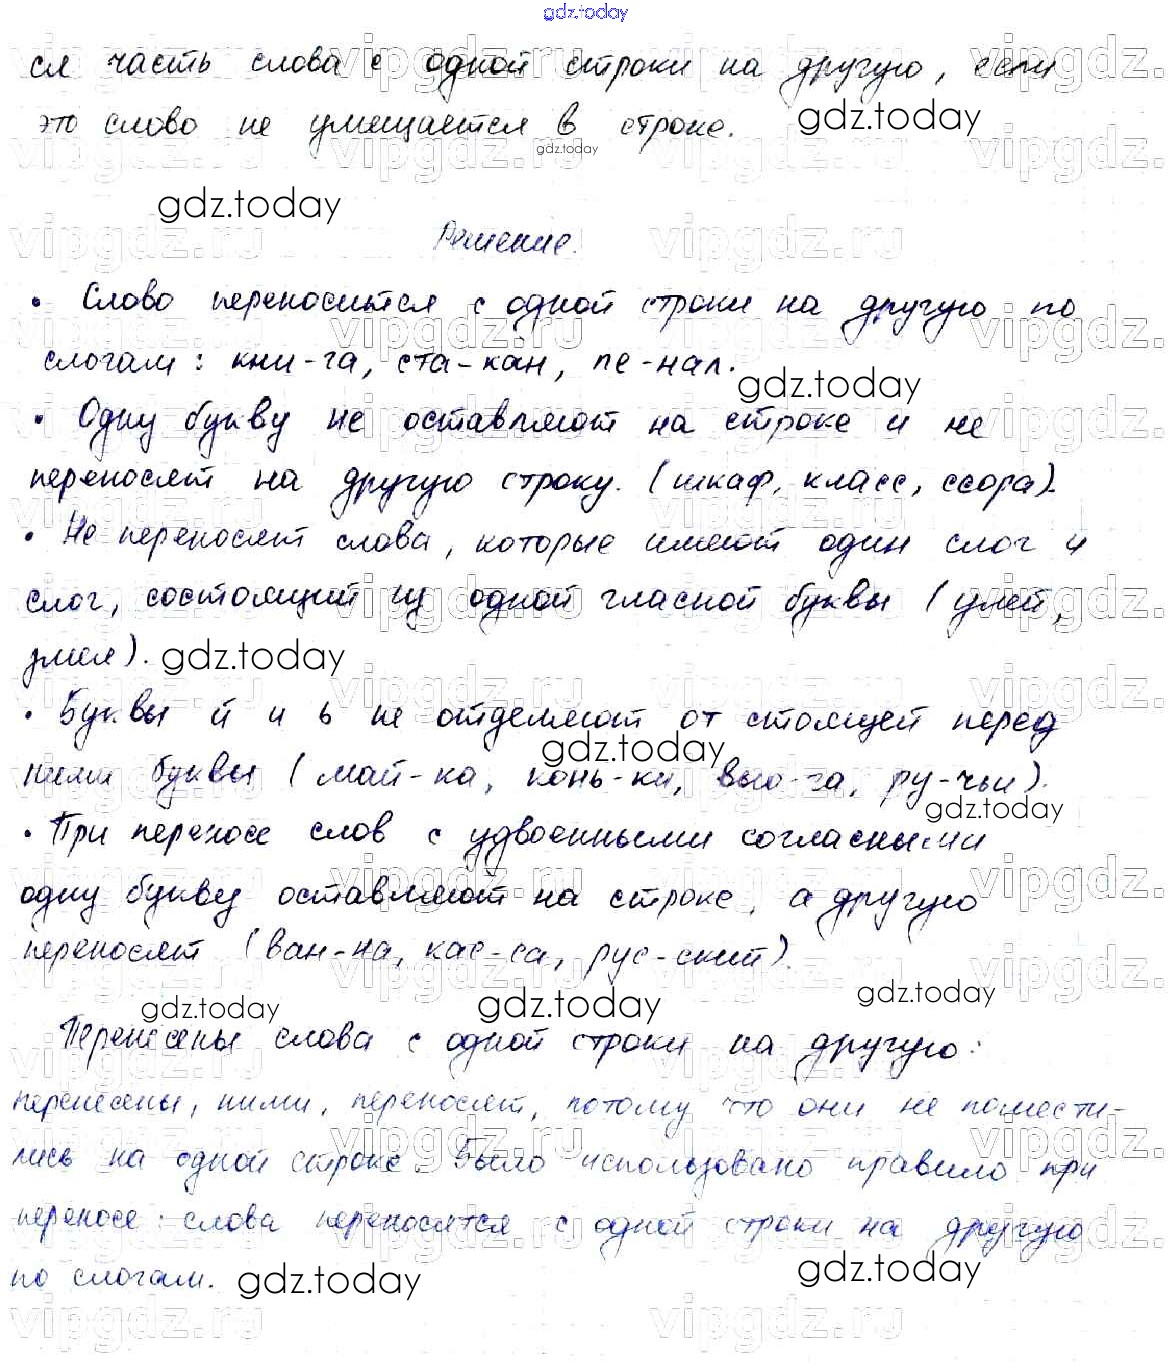 gdz.today
ся часть слова с одной строки на другую, если
это слово не умещается в строке.
gdz.today
gdz.today
gdz.today
Решение.
• Слово переносится с одной строки на другую по
слогам: кни-га, ста-кан, пе-нал.
gdz.today
• Одну букву не оставляют на строке и не
переносят на другую строку. (шкаф, класс, ссора).
• Не переносят слова, которые имеют один слог и
слог, состоящий из одной гласной буквы (улей,
змея).
gdz.today
• Буквы й и ь не отделяют от стоящей перед
gdz.today
ними буквы (май-ка, конь-ки, вью-га, ру-чьи).
gdz.today
• При переносе слов с удвоенными согласными
одну букву оставляют на строке, а другую
переносят (ван-на, кас-са, рус-ский).
gdz.today
gdz.today
gdz.today
Перенесены слова с одной строки на другую:
перенесены, ними, переносят, потому что они не помести-
лись на одной строке. Было использовано правило при
переносе: слова переносятся с одной строки на другую
по слогам.
gdz.today
gdz.today
vipgdz.ru